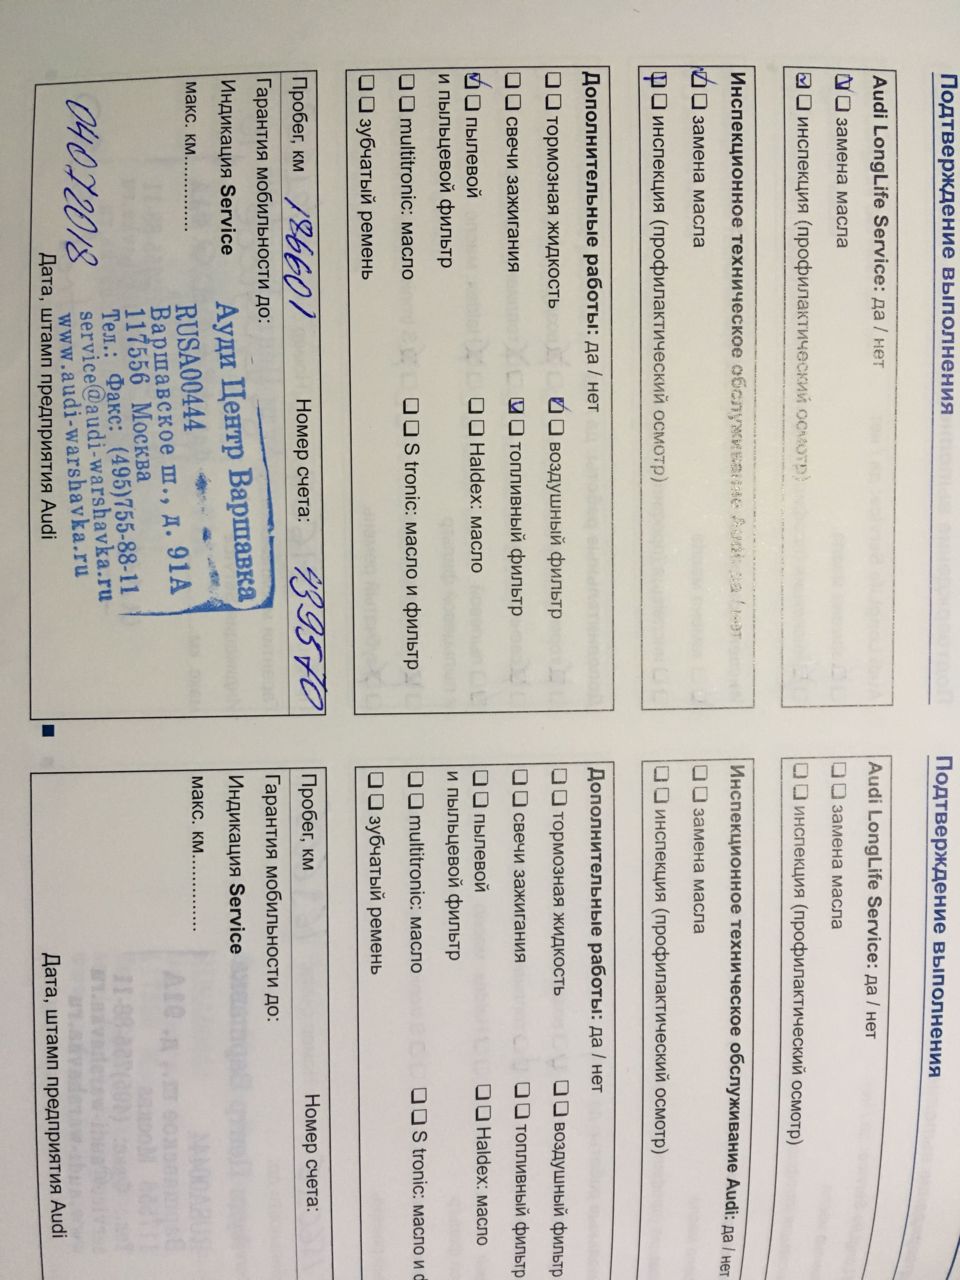 Подтверждение выполнения
Audi LongLife Service: да / нет
замена масла
инспекция (профилактический осмотр)
Инспекционное техническое обслуживание Audi: да / нет
замена масла
инспекция (профилактический осмотр)
Дополнительные работы: да / нет
тормозная жидкость
воздушный фильтр
свечи зажигания
топливный фильтр
пылевой
и пыльцевой фильтр
Haldex: масло
multitronic: масло
S tronic: масло и фильтр
зубчатый ремень
Пробег, км 186601
Номер счета: 439570
Гарантия мобильности до:
Индикация Service
макс. км..............
Ауди Центр Варшавка
RUSA00444
Варшавское ш., д. 91А
117556 Москва
Тел.: Факс: (495)755-88-11
service@audi-warshavka.ru
www.audi-warshavka.ru
04072018
Дата, штамп предприятия Audi
Подтверждение выполнения
Audi LongLife Service: да / нет
замена масла
инспекция (профилактический осмотр)
Инспекционное техническое обслуживание Audi: да / нет
замена масла
инспекция (профилактический осмотр)
Дополнительные работы: да / нет
тормозная жидкость
воздушный фильтр
свечи зажигания
топливный фильтр
пылевой
и пыльцевой фильтр
Haldex: масло
multitronic: масло
S tronic: масло и
зубчатый ремень
Пробег, км
Номер счета:
Гарантия мобильности до:
Индикация Service
макс. км..............
Дата, штамп предприятия Audi